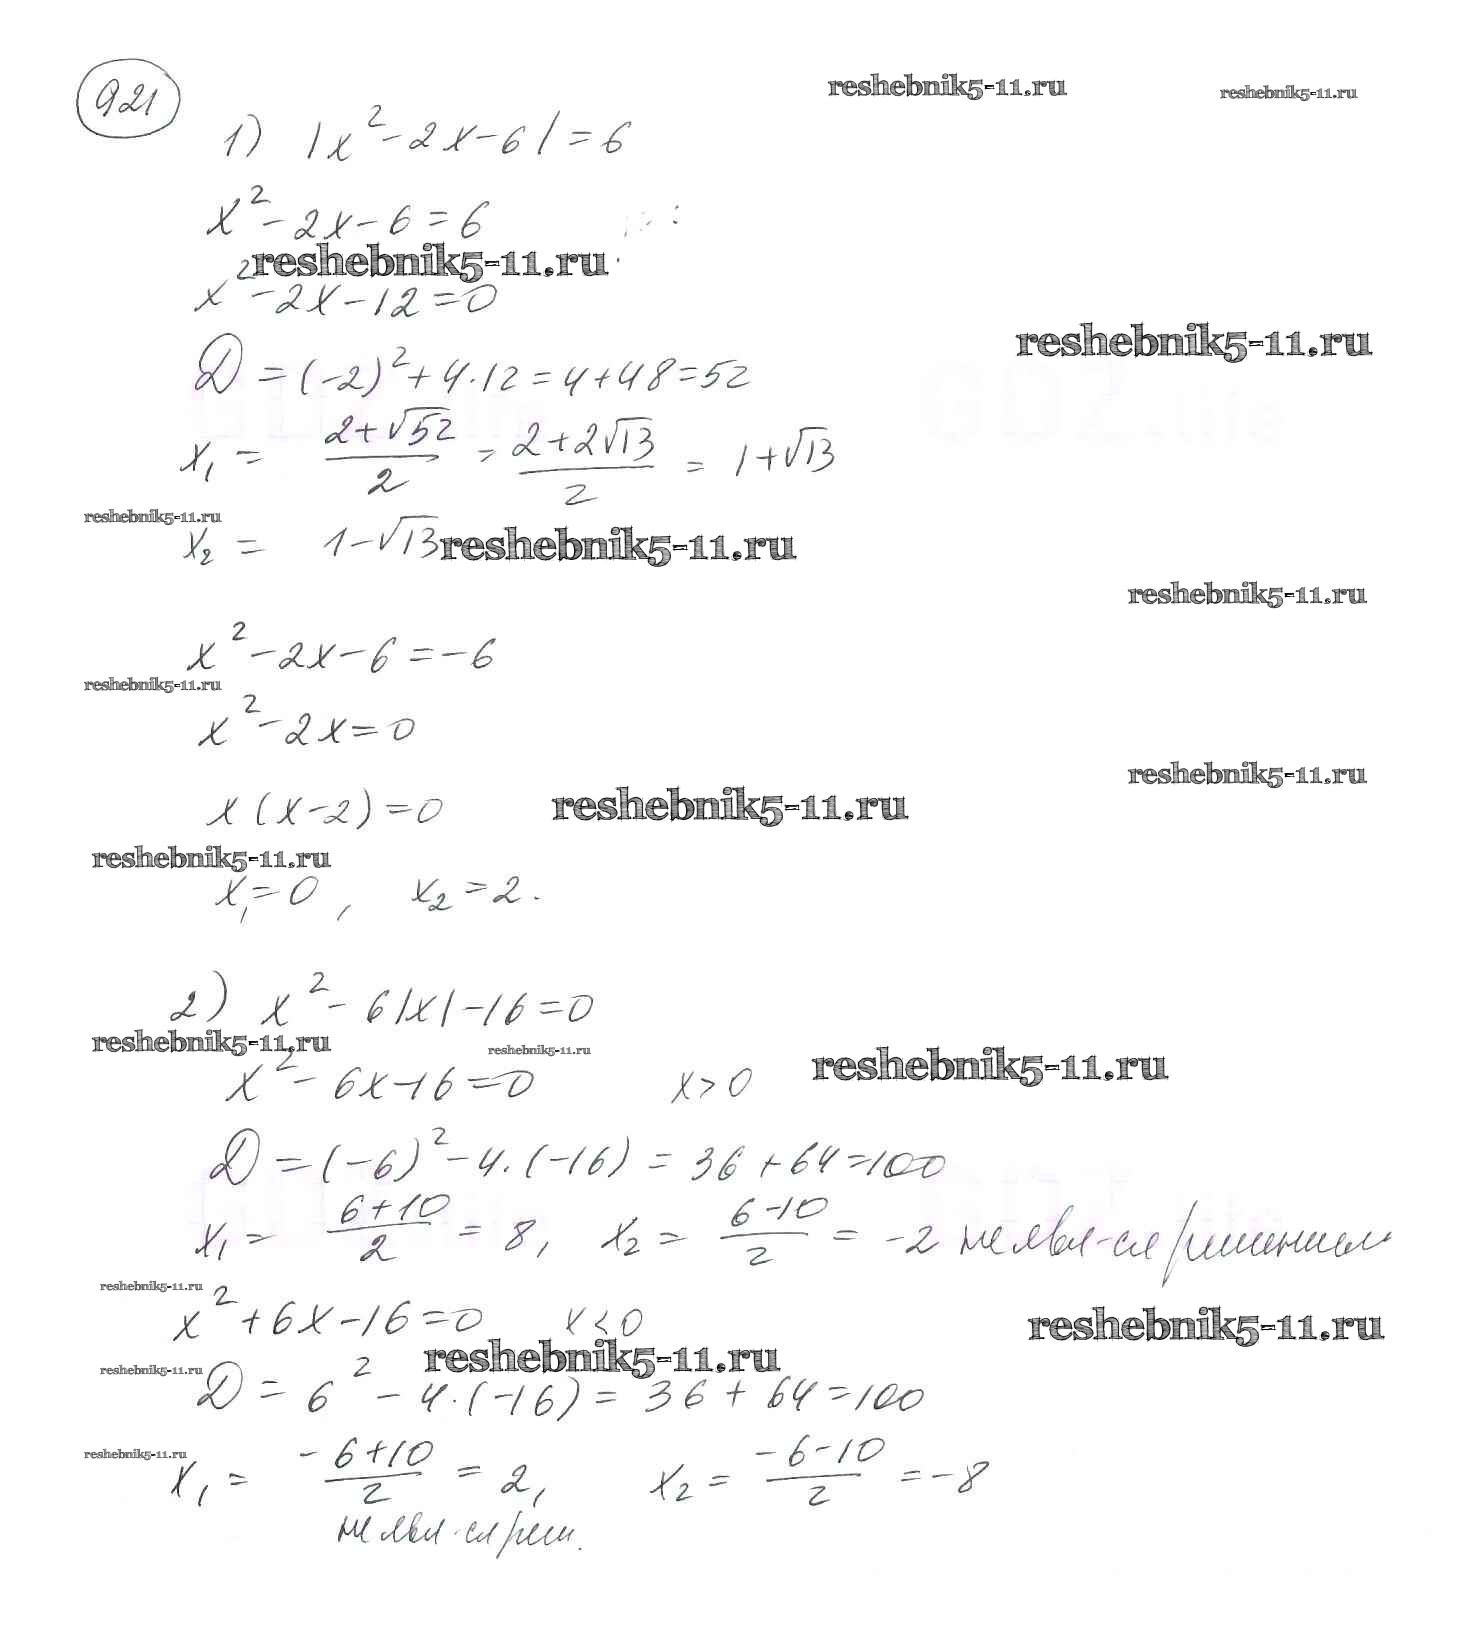 921
reshebnik5-11.ru
reshebnik5-11.ru
1) |x² - 2x - 6| = 6
x² - 2x - 6 = 6
reshebnik5-11.ru
x² - 2x - 12 = 0
reshebnik5-11.ru
D = (-2)² + 4·12 = 4 + 48 = 52
GDZ.life
GDZ.life
x₁ = (2+√52)/2 = (2+2√13)/2 = 1+√13
reshebnik5-11.ru
x₂ = 1-√13
reshebnik5-11.ru
reshebnik5-11.ru
x² - 2x - 6 = -6
reshebnik5-11.ru
x² - 2x = 0
reshebnik5-11.ru
x(x-2) = 0
reshebnik5-11.ru
reshebnik5-11.ru
x₁ = 0, x₂ = 2.
2) x² - 6|x| - 16 = 0
reshebnik5-11.ru
reshebnik5-11.ru
reshebnik5-11.ru
x² - 6x - 16 = 0 x > 0
D = (-6)² - 4·(-16) = 36 + 64 = 100
x₁ = (6+10)/2 = 8, x₂ = (6-10)/2 = -2 не явл-ся решением
reshebnik5-11.ru
x² + 6x - 16 = 0 x < 0
reshebnik5-11.ru
reshebnik5-11.ru
reshebnik5-11.ru
D = 6² - 4·(-16) = 36 + 64 = 100
reshebnik5-11.ru
x₁ = (-6+10)/2 = 2, x₂ = (-6-10)/2 = -8
не явл-ся реш.